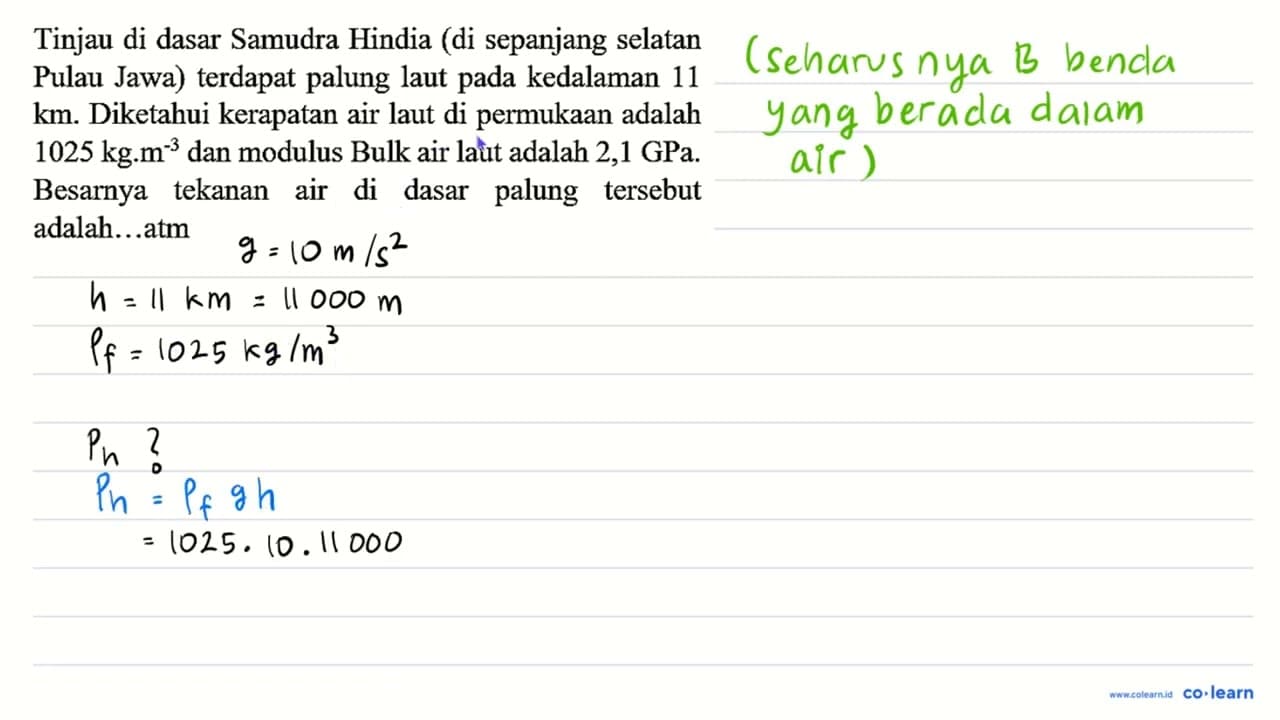 Tinjau di dasar Samudra Hindia (di sepanjang selatan
Pulau Jawa) terdapat palung laut pada kedalaman 11
km. Diketahui kerapatan air laut di permukaan adalah
1025 kg.m⁻³ dan modulus Bulk air laut adalah 2,1 GPa.
Besarnya tekanan air di dasar palung tersebut
adalah...atm
(seharusnya B benda
yang berada dalam
air)
g = 10 m/s²
h = 11 km = 11 000 m
ρf = 1025 kg/m³
Ph ?
Ph = ρf gh
= 1025. 10. 11 000
www.colearn.id co·learn